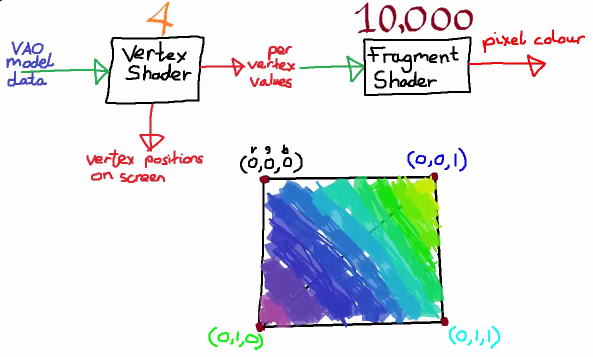 4
10,000
VAO
model
data
Vertex
Shader
per
vertex
values
Fragment
Shader
pixel colour
vertex positions
on screen
r g b
(0,0,0)
(0,0,1)
(0,1,0)
(0,1,1)